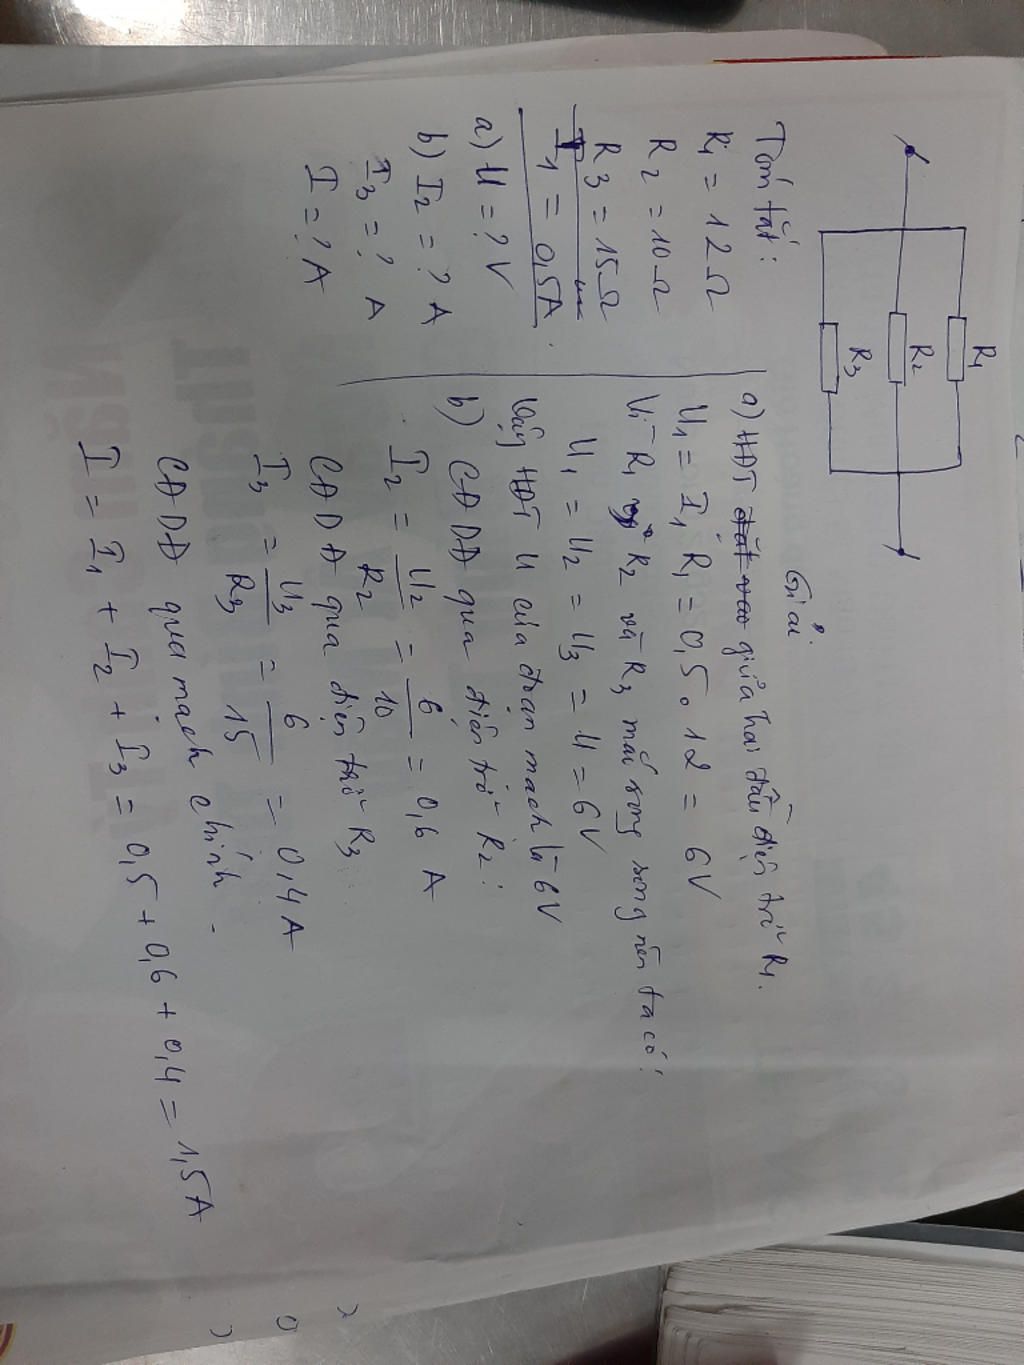 R1
R2
R3
Tóm tắt:
R1 = 12 Ω
R2 = 10 Ω
R3 = 15 Ω
I1 = 0,5A
a) U = ? V
b) I2 = ? A
I3 = ? A
I = ? A
Giải
a) HĐT đặt vào giữa hai đầu điện trở R1.
U1 = I1 R1 = 0,5 . 12 = 6V
Vì R1 R2 và R3 mắc song song nên ta có:
U1 = U2 = U3 = U = 6V
Vậy HĐT U của đoạn mạch là 6V
b) CĐDĐ qua điện trở R2:
I2 = U2/R2 = 6/10 = 0,6 A
CĐDĐ qua điện trở R3
I3 = U3/R3 = 6/15 = 0,4A
CĐDĐ qua mạch chính.
I = I1 + I2 + I3 = 0,5 + 0,6 + 0,4 = 1,5A